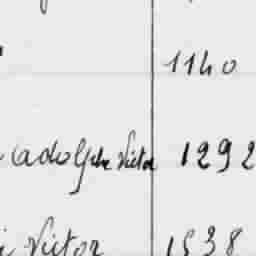 1140
adolphe Victor 1292
Victor 1538